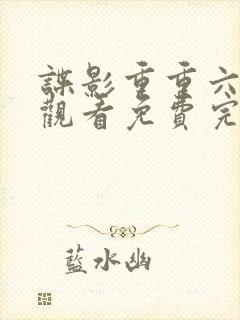 諜影重重六
觀看免費完
藍水幽